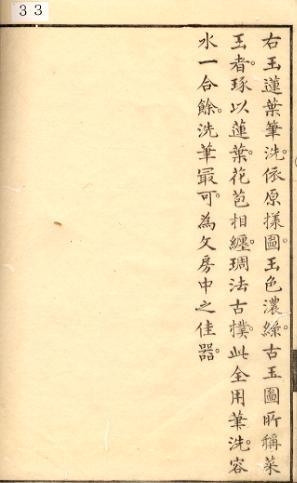 33
右玉蓮葉筆洗。依原樣圖。玉色濃綠。古玉圖所稱菜
玉者。琢以蓮葉。花苞相纏。琱法古樸。此全用筆洗。容
水一合餘。洗筆㝡可。為文房中之佳器。